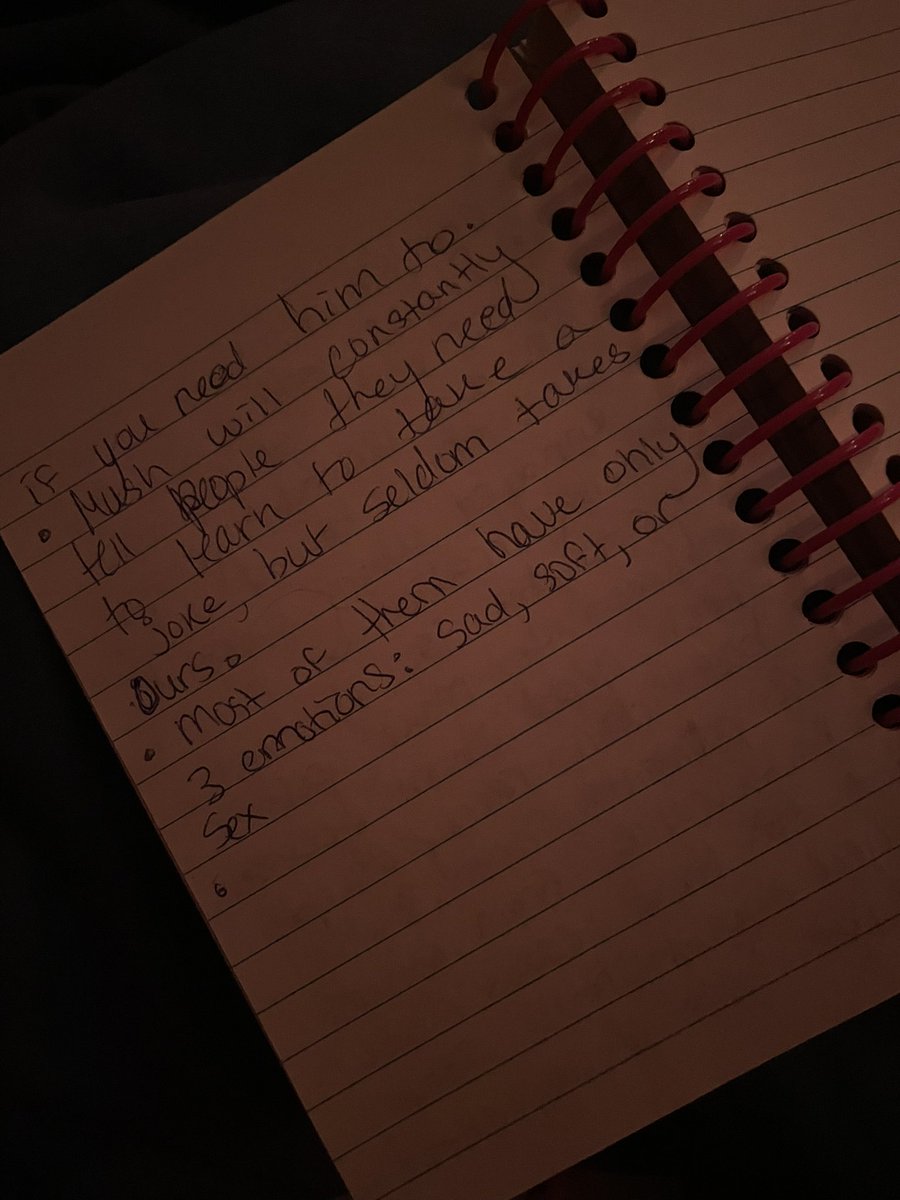 if you need him to.
• Mush will constantly
tell people they need
to learn to take a
joke, but seldom takes
Ours.
• Most of them have only
3 emotions: Sad, soft, or
Sex
•